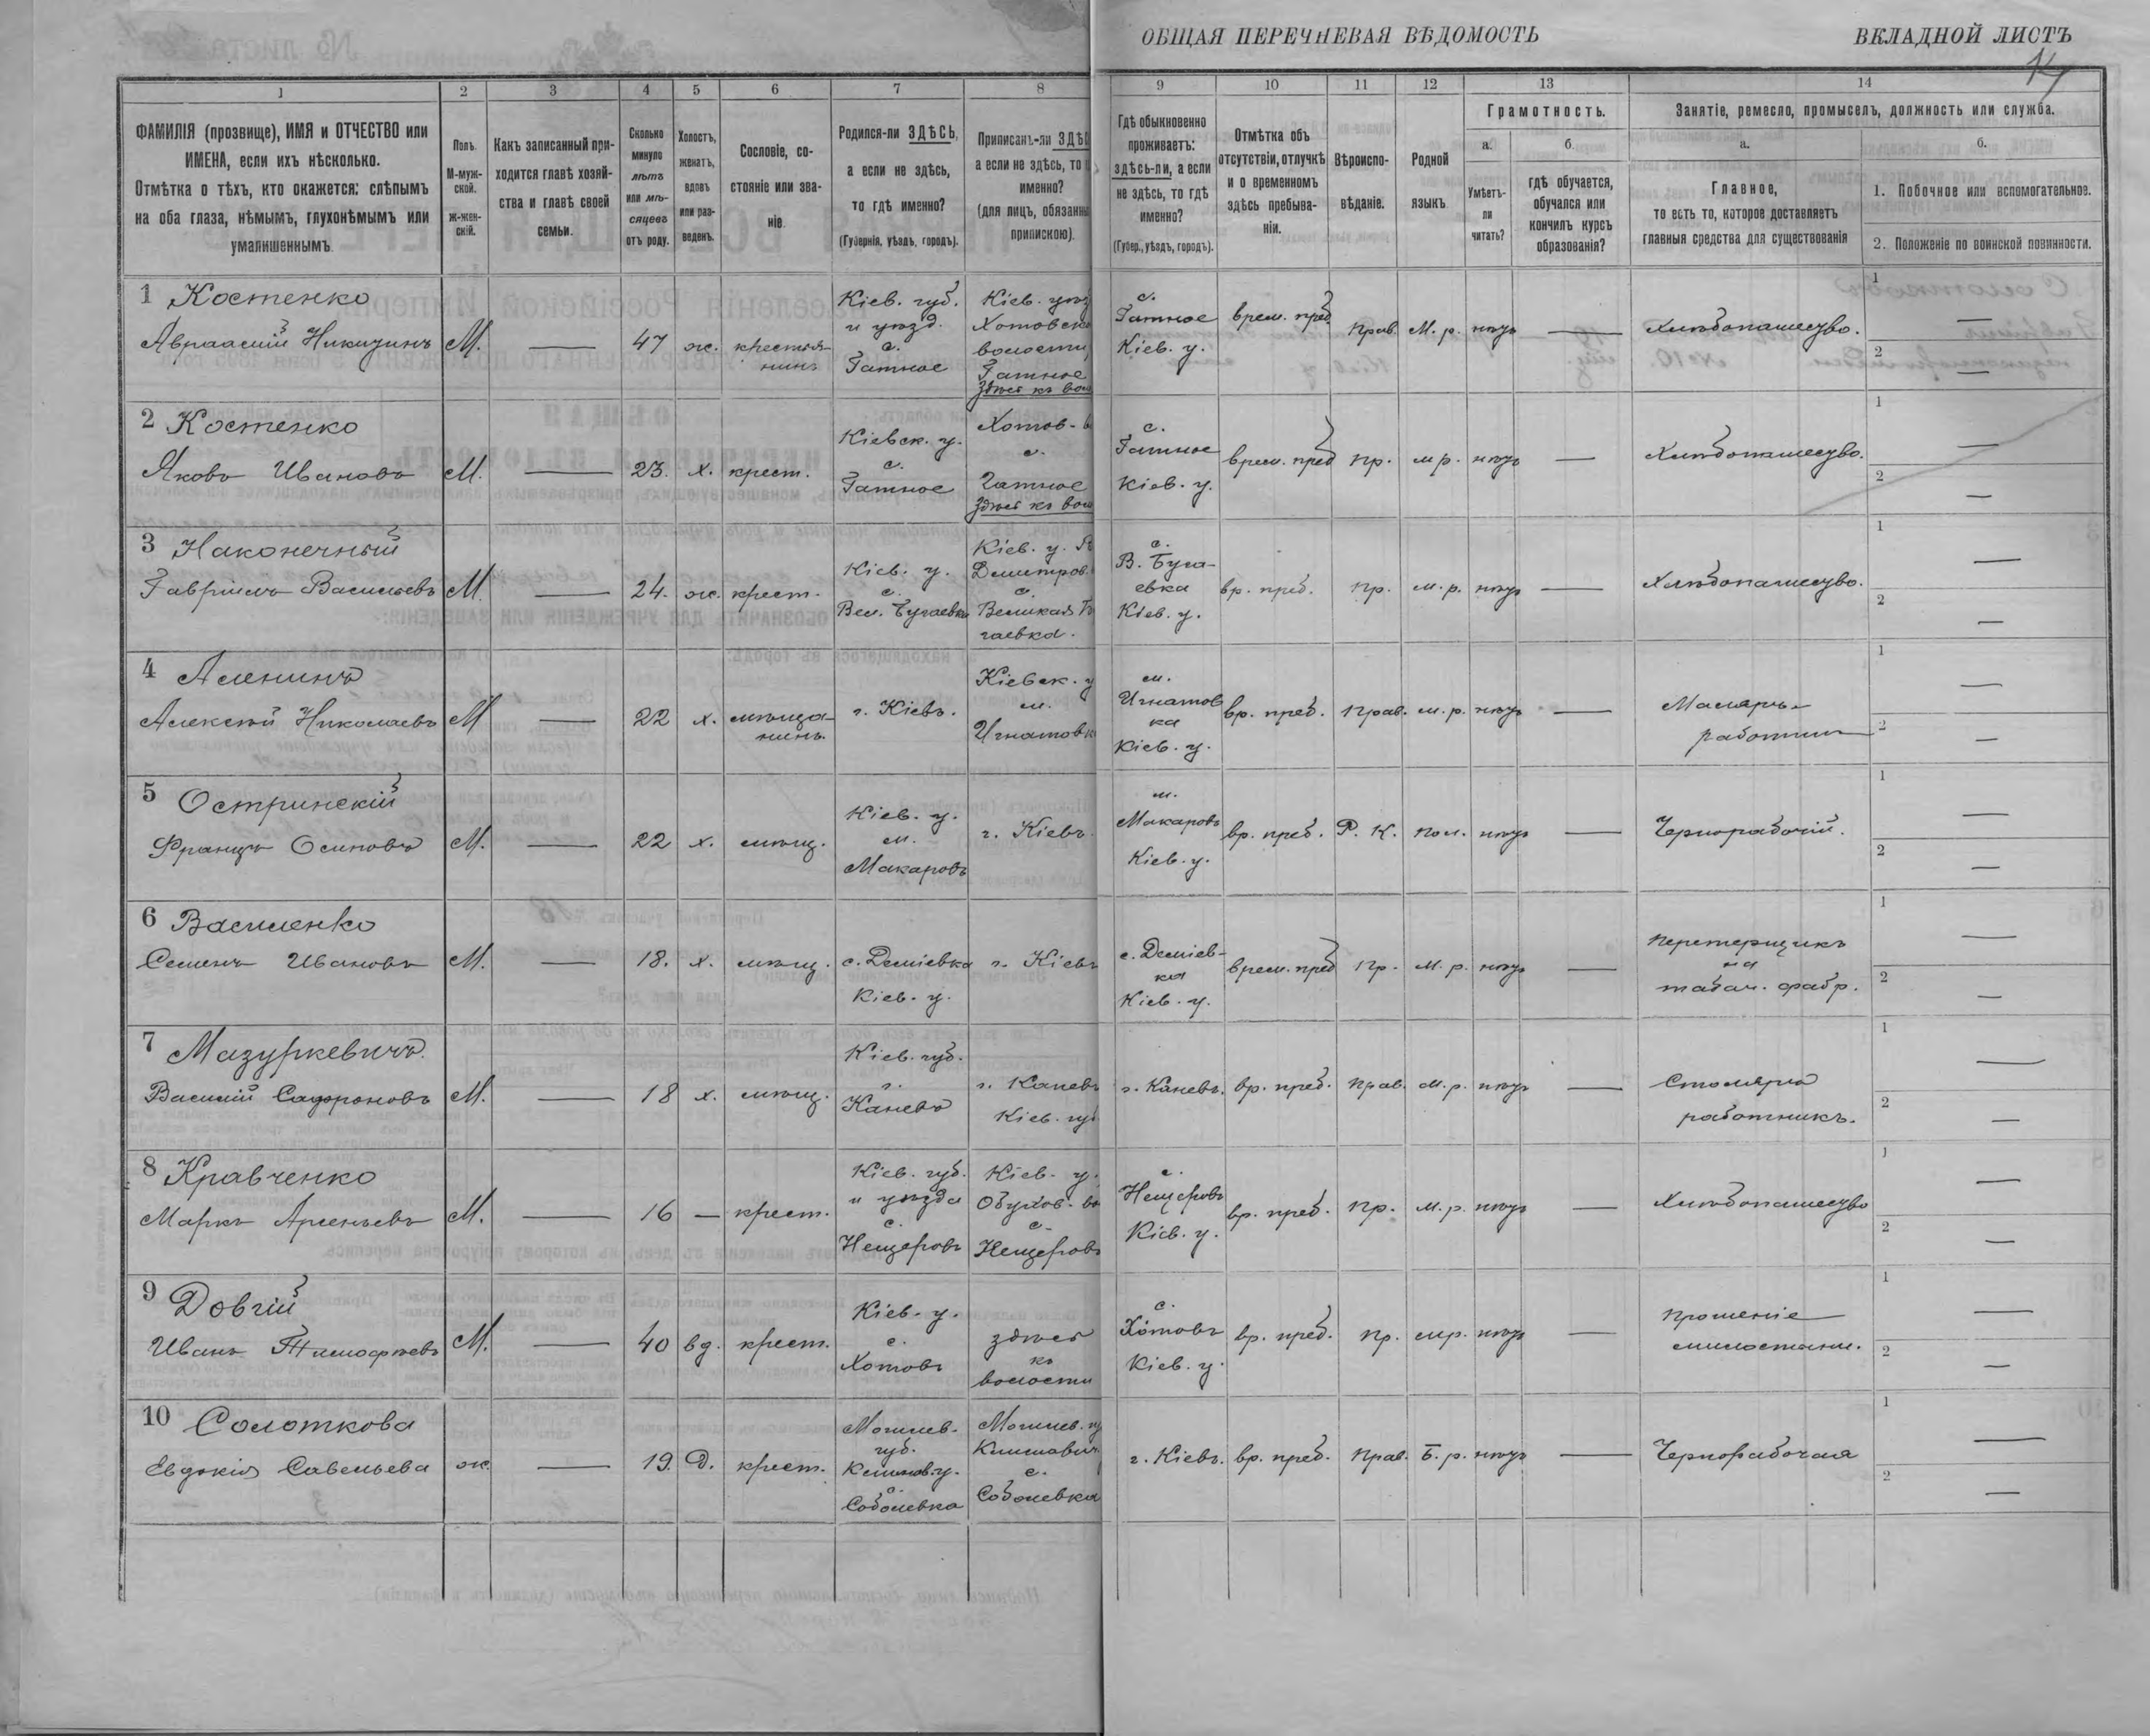 ОБЩАЯ ПЕРЕЧНЕВАЯ ВѢДОМОСТЬ
ВКЛАДНОЙ ЛИСТЪ
14
1 2 3 4 5 6 7 8 9 10 11 12 13 14
ФАМИЛІЯ (прозвище), ИМЯ и ОТЧЕСТВО или
ИМЕНА, если ихъ нѣсколько.
Отмѣтка о тѣхъ, кто окажется: слѣпымъ
на оба глаза, нѣмымъ, глухонѣмымъ или
умалишеннымъ
Полъ.
М-муж-
ской.
ж-жен-
скій.
Какъ записанный при-
ходится главѣ хозяй-
ства и главѣ своей
семьи.
Сколько
минуло
лѣтъ
или мѣ-
сяцевъ
отъ роду.
Холостъ,
женатъ,
вдовъ
или раз-
веденъ.
Сословіе, со-
стояніе или зва-
ніе
Родился-ли ЗДѢСЬ,
а если не здѣсь,
то гдѣ именно?
(Губернія, уѣздъ, городъ).
Приписанъ-ли ЗДѢ
а если не здѣсь, то
именно?
(для лицъ, обязанны
припискою)
Гдѣ обыкновенно
проживаетъ:
здѣсь-ли, а если
не здѣсь, то гдѣ
именно?
(Губер., уѣздъ, городъ).
Отмѣтка объ
отсутствіи, отлучкѣ
и о временномъ
здѣсь пребыва-
ніи.
Вѣроиспо-
вѣданіе.
Родной
языкъ
Грамотность.
а.
Умѣетъ-
ли
читать?
б.
гдѣ обучается,
обучался или
кончилъ курсъ
образованія?
Занятіе, ремесло, промыселъ, должность или служба.
а.
Главное,
то есть то, которое доставляетъ
главныя средства для существованія
б.
1. Побочное или вспомогательное.
2. Положеніе по воинской повинности.
1 Костенко
Авраамій Никитинъ М. — 47 ж. крестья-
нинъ
Кіев. губ.
и уѣзд.
с.
Гатное
Кіев. уѣз
Хотовско
волости,
Гатное
Здѣсь къ вол
с.
Гатное
Кіев. у.
врем. преб. Прав. М. р. нѣтъ — Хлѣбопашество.
1 —
2 —
2 Костенко
Яковъ Ивановъ М. — 23. х. крест.
Кіевск. у.
с.
Гатное
Хотов- в
с.
Гатное
Здѣсь къ вол
с.
Гатное
Кіев. у.
врем. преб пр. м р. нѣтъ — Хлѣбопашество.
1 —
2 —
3 Наконечный
Гавріилъ Васильевъ М. — 24. ж. крест.
Кіев. у.
с.
Вел. Бугаевка
Кіев. у.
Дмитров.
с.
Великая Бу
гаевка.
с.
В. Буга-
евка
Кіев. у.
вр. преб. пр. м. р. нѣтъ — Хлѣбопашество.
1 —
2 —
4 Аленинъ
Алексѣй Николаевъ М — 22 х. мѣща-
нинъ
г. Кіевъ.
Кіевск. у
м.
Игнатовк
м.
Игнатов
ка
Кіев. у.
вр. преб. Прав. м. р. нѣтъ —
Маляръ-
работник
1 —
2 —
5 Остринскій
Францъ Осиповъ М. — 22 х. мѣщ.
Кіев. у.
м.
Макаровъ
г. Кіевъ.
м.
Макаровъ
Кіев. у.
вр. преб. Р. К. пол. нѣтъ — Чернорабочій.
1 —
2 —
6 Василенко
Семенъ Ивановъ М. — 18. х. мѣщ.
с. Деміевка
Кіев. у.
г. Кіевъ
с. Деміев-
ка
Кіев. у.
врем. преб пр. м. р. нѣтъ —
Перетерщикъ
на
табач. фабр.
1 —
2 —
7 Мазуркевичъ.
Василій Сафроновъ М. — 18 х. мѣщ.
Кіев. губ.
г.
Каневъ
г. Каневъ
Кіев. губ
г. Каневъ. вр. преб. Прав. м. р. нѣтъ —
Столяръ
работникъ.
1 —
2 —
8 Кравченко
Маркъ Арсеньевъ М. — 16 — крест.
Кіев. губ.
и уѣзда
с.
Нещеровъ
Кіев. у.
Обухов. во
с.
Нещеровъ
с.
Нещеровъ
Кіев. у.
вр. преб. пр. м. р. нѣтъ — Хлѣбопашество
1 —
2 —
9 Довгій
Иванъ Тимофѣевъ М. — 40 вд. крест.
Кіев. у.
с.
Хотовъ
здѣсь
къ
волости
с.
Хотовъ
Кіев. у.
вр. преб. пр. м р. нѣтъ —
Прошеніе
милостыни.
1 —
2 —
10 Солоткова
Евдокія Савельева ж. — 19. д. крест.
Могилев.
губ.
Климов. у.
с.
Соболевка
Могилев. гу
Климович
с.
Соболевка
г. Кіевъ. вр. преб. Прав. Б. р. нѣтъ — Чернорабочая
1 —
2 —